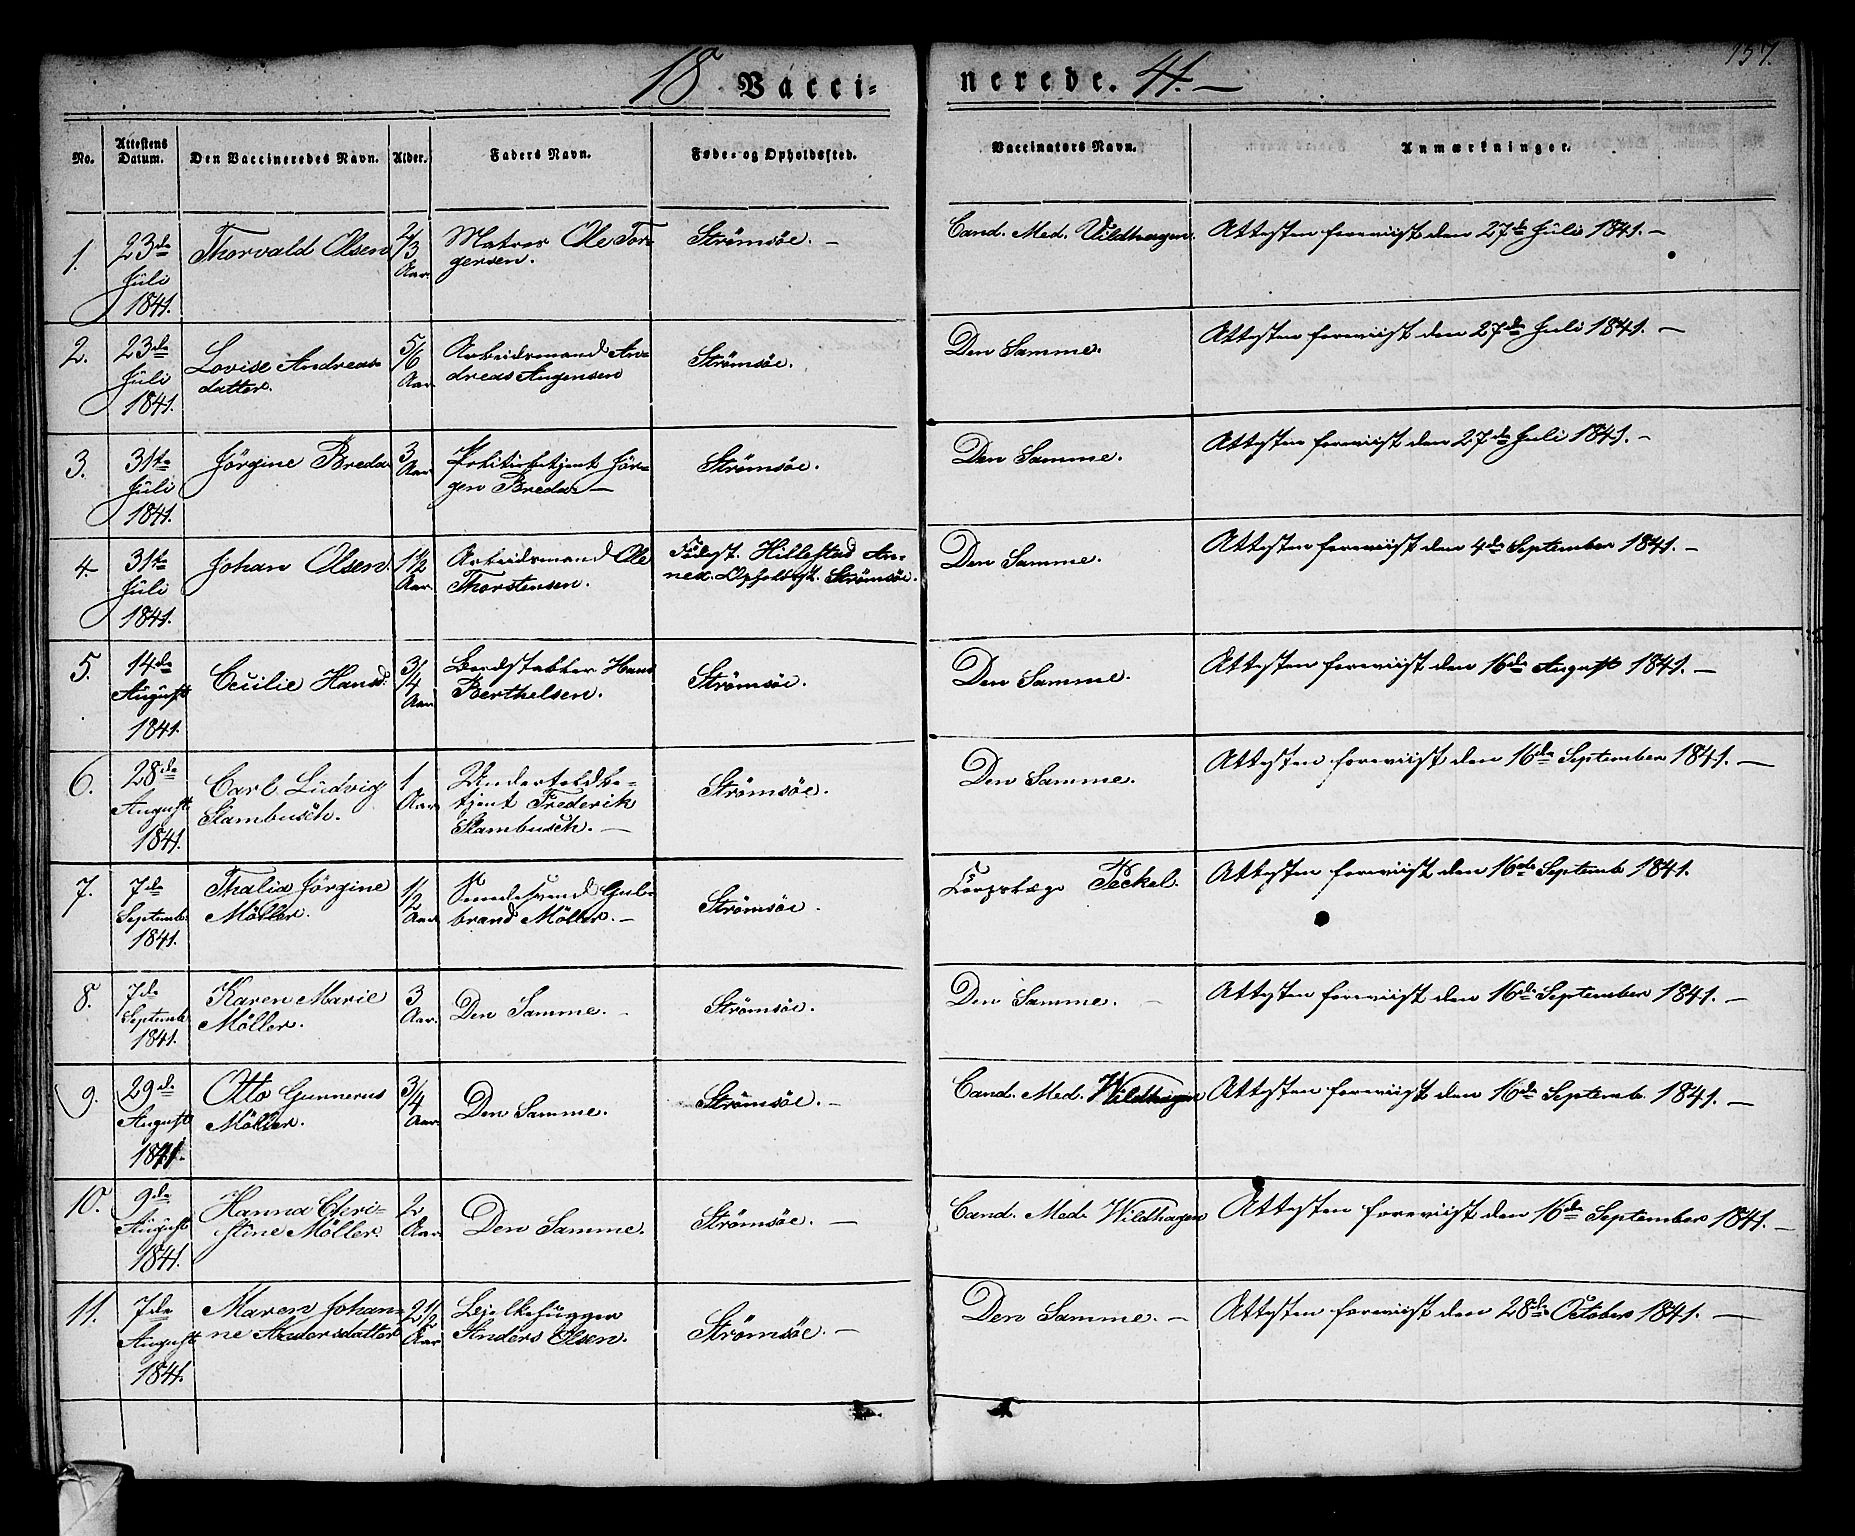 157.
18 Vacci-nerede. 41. —
No. | Attestens Datum. | Den Vaccineredes Navn. | Alder. | Faders Navn. | Føde- og Opholdssted. | Vaccinators Navn. | Anmærkninger.
1. | 23de Juli 1841. | Thorvald Olsen | 2/3 Aar | Matros Ole Torgersen. | Strömsöe. — | Cand. Med. Vildhagen. | Attesten foreviist den 27de Juli 1841. —
2. | 23de Juli 1841. | Lovise Andreasdatter. | 5/6 Aar | Arbeidsmand Andreas Augensen | Strömsöe. | Den Samme. | Attesten foreviist den 27de Juli 1841. —
3. | 31te Juli 1841. | Jörgine Breda | 3 Aar | Politiebetjent Jörgen Breda. — | Strömsöe. | Den Samme. | Attesten foreviist den 27de Juli 1841. —
4. | 31te Juli 1841. | Johan Olsen | 1 1/2 Aar. | Arbeidsmand Ole Thorstensen. | Födest. Hillestad Annex. Opholdsst. Strömsöe. | Den Samme. | Attesten foreviist den 4de September 1841. —
5. | 14de August 1841. | Cecilie Hansd. | 3/4 Aar | Bordstabler Hans Berthelsen. | Strömsöe. | Den Samme. | Attesten foreviist den 16de August 1841. —
6. | 28de August 1841. | Carl Ludvig Stambusch. | 1 Aar | Undertoldbetjent Frederik Stambusch. — | Strömsöe. | Den Samme. | Attesten foreviist den 16de September 1841. —
7. | 7de Septemb. 1841. | Thalia Jörgine Möller. | 1/2 Aar | Svendesvend Gulbrand Möller. — | Strömsöe. | Corpslæge Peckel. | Attesten foreviist den 16de Septemb 1841.
8. | 7de Septemb. 1841. | Karen Marie Möller. | 3 Aar. | Den Samme. | Strömsöe. | Den Samme. — | Attesten foreviist den 16de September 1841. —
9. | 29de August 1841. | Otto Gunnerus Möller. | 3/4 Aar | Den Samme. | Strömsöe. — | Cand. Med. Wildhagen | Attesten foreviist den 16de Septemb. 1841. —
10. | 9de August 1841. | Hanna Christine Möller. | 2 Aar. | Den Samme. | Strömsöe. — | Cand. Med. Wildhagen | Attesten foreviist den 16de September 1841. —
11. | 7de August 1841. | Maren Johanne Andersdatter | 2 1/2 Aar | Bjelkehugger Anders Olsen. | Strömsöe. — | Den Samme. — | Attesten foreviist den 28de October 1841. —